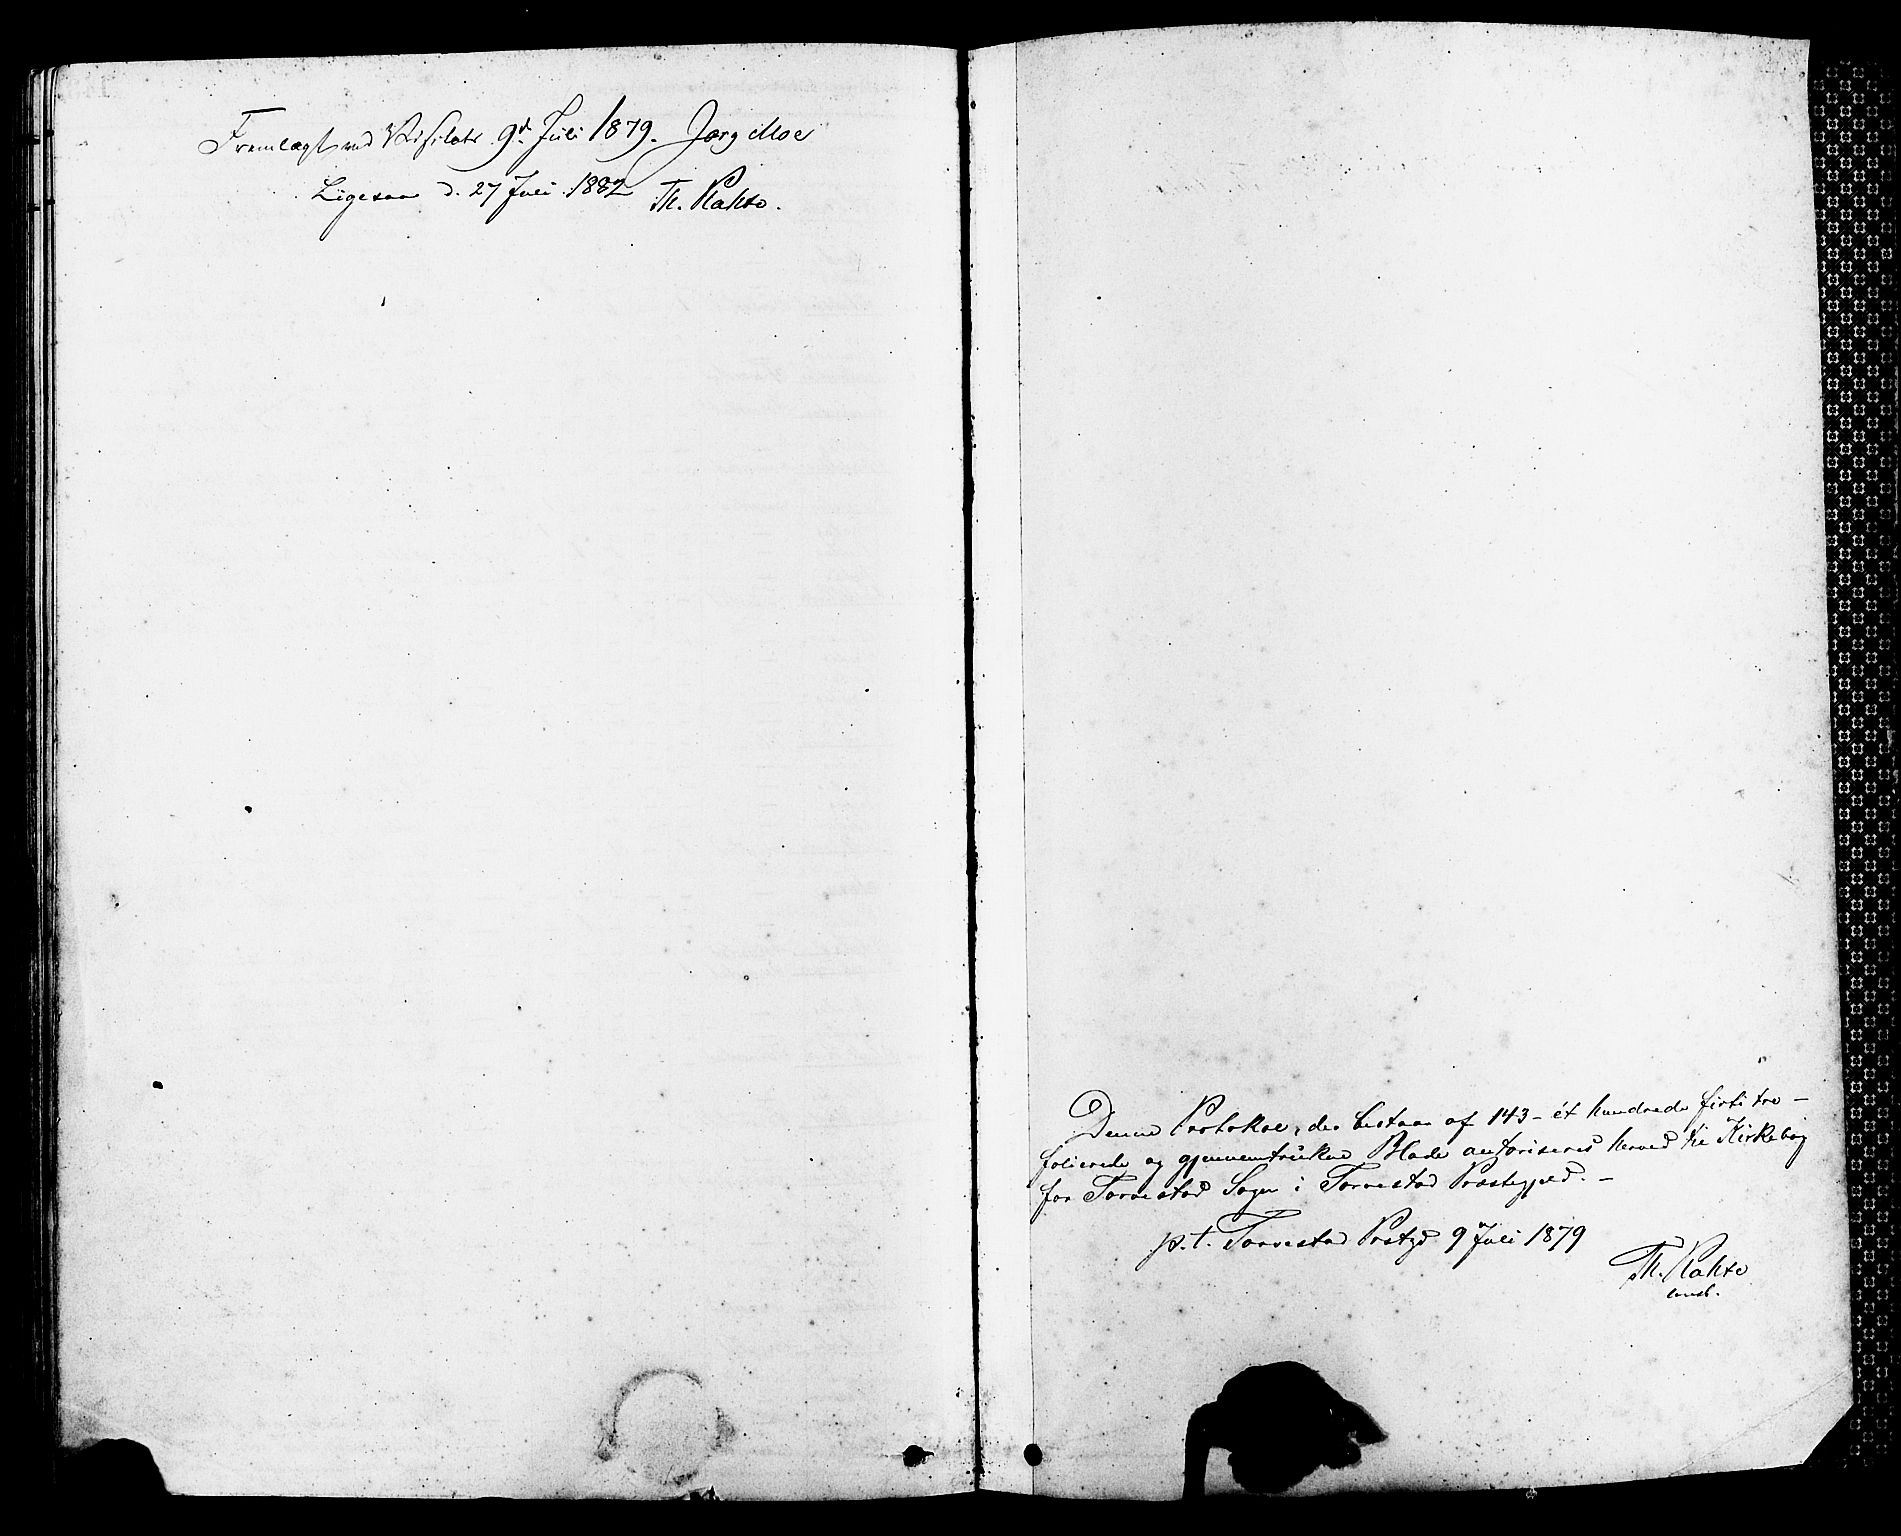 Fremlagt ved Visitats 9d Juli 1879. Jørg Moe
Ligesaa d. 27 Juli 1882 Th. Kahrs.
Denne Protokol, der bestaar af 143 - ét hundrede firti tre -
folierede og gjennemtrukne Blade autoriseres herved til Kirkebog
for Torvestad Sogn i Torvestad Præstegjæld. -
p. t. Torvestad Prstgd 9 Juli 1879
Th. Kahrs
const.